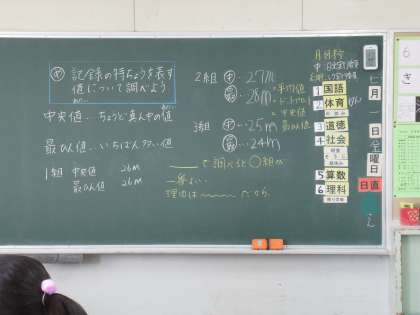 め 記録の特ちょうを表す
値について調べよう
中央値…ちょうど真ん中の値
最ひん値…いちばん多い値
1組 中央値 26m
最ひん値 26m
2組 中…27m
最…28m
3組 中…25m
最…24m
・平均値
・中央値
・最ひん値
で調べると〇組が
一番よい。
理由は〜 だから。
1 国語
2 体育
3 道徳
4 社会
5 算数
6 理科
七月一日金曜日
日直